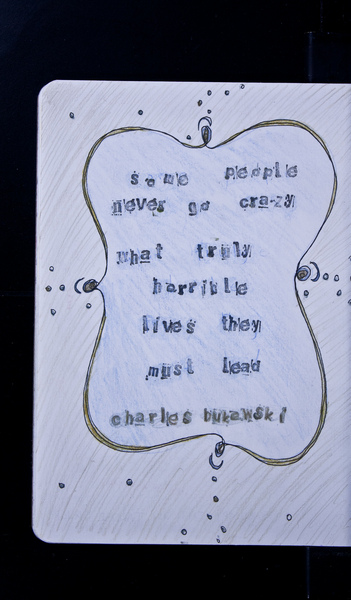 some people
never go crazy
what truly
horrible
lives they
must lead
charles bukawski